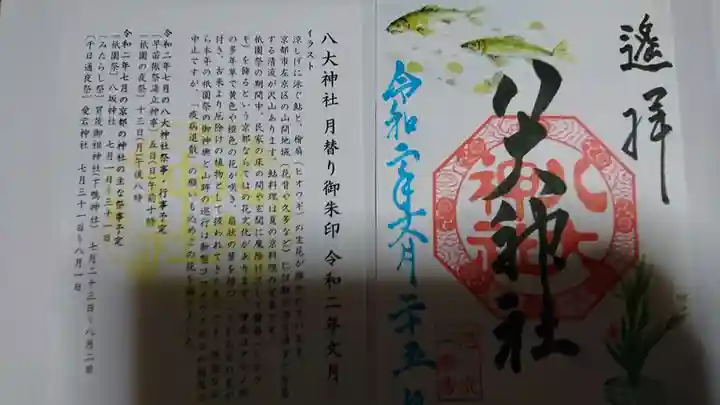 遙拝
八大神社
八大神社
令和二年文月二十五日
八大神社 月替り御朱印 令和二年文月
イラスト
涼しげに泳ぐ鮎と、檜扇(ヒオウギ)の
京都市左京区の山間地域(花背や久多など)には
する清流が沢山あります。鮎料理は夏の京料理の定番です。
祇園祭の期間中、民家の床の間や玄関に魔除けとして檜扇(ヒオウ
ギ)を飾るという京都ならではの花文化があります。
の多年草で黄色や橙色の花が咲き、扇状の葉を持つ
付き、古来より厄除けの植物として扱われてきた
ら本年の祇園祭の御神輿と山鉾の巡行は新型コロナウイルスの
中止ですが、「疫病退散」の願いも込めこの花を描きました。
令和二年七月の八大神社祭事・行事予定
「早苗饗祭湯立神事」五日(日)午前十時
「祇園の夜祭」十三日(月)午後八時
令和二年七月の京都の神社の主な祭事予定
「祇園祭」八坂神社 七月一日~三十一日
「みたらし祭」賀茂御祖神社(下鴨神社) 七月二十三日~八月二日
「千日通夜祭」愛宕神社 七月三十一日~八月一日